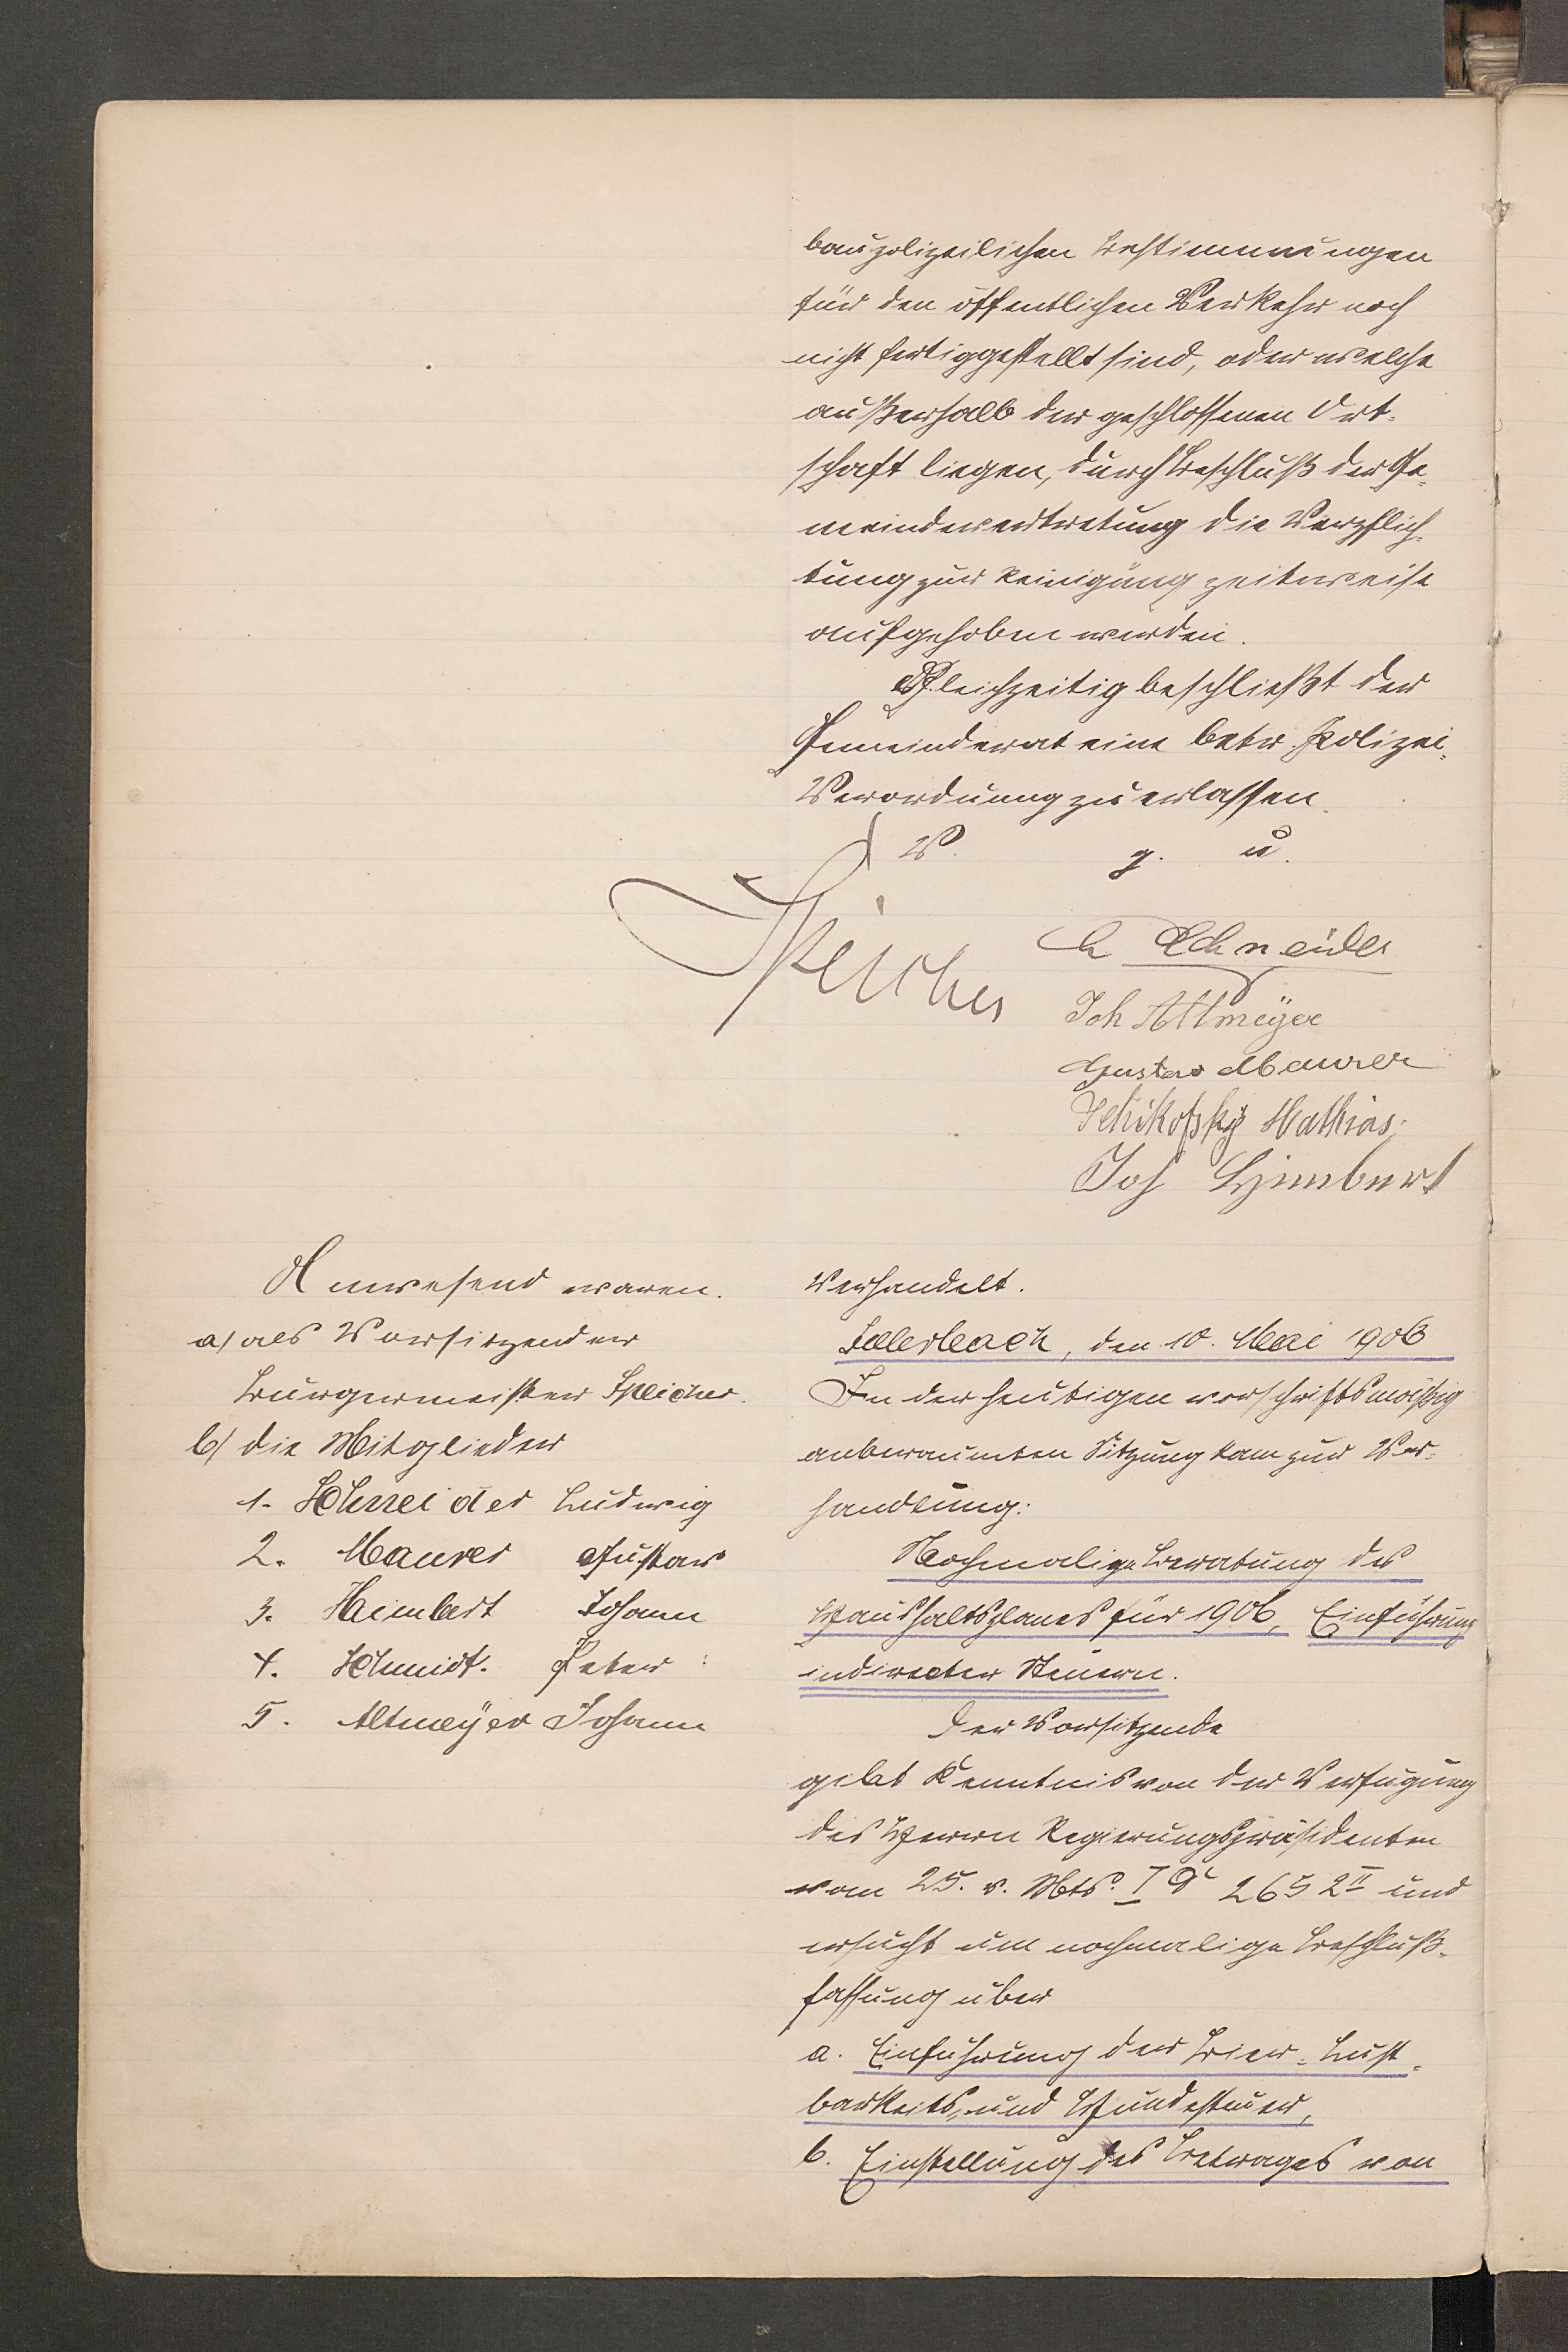 baupolizeilichen Bestimmungen
für den öffentlichen Verkehr noch
nicht fertiggestellt sind, oder welche
außerhalb der geschlossenen Ort-
schaft liegen, durch Beschluß der Ge-
meindevertretung die Verpflich-
tung zur Reinigung zeitweise
aufgehoben werden.
Gleichzeitig beschließt der
Gemeinderat eine betr. Polizei-
Verordnung zu erlassen.
V. g. u.
Speicher
L Schneider
Joh Altmeyer
Gustav Maurer
Schikofsky Mathias
Joh Heimbert
Anwesend waren.
a) als Vorsitzender
Bürgermeister Speicher.
b) die Mitglieder
1. Schneider Ludwig
2. Maurer Gustav
3. Heimbert Johann
4. Schmidt Peter
5. Altmeyer Johann
Verhandelt.
den 10. Mai 1906
In der heutigen vorschriftsmäßig
anberaumten Sitzung kam zur Ver-
handlung:
Nochmalige Beratung des
Haushaltsplanes für 1906, Einführung
indirecter Steuern.
Der Vorsitzende
gibt Kenntnis von der Verfügung
des Herrn Regierungspräsidenten
vom 25. v. Mts. I 2652 II und
ersucht um nochmalige Beschluß-
fassung über
a. Einführung der Bier-, Lust-
barkeits- und Hundesteuer,
b. Einstellung des Betrages von